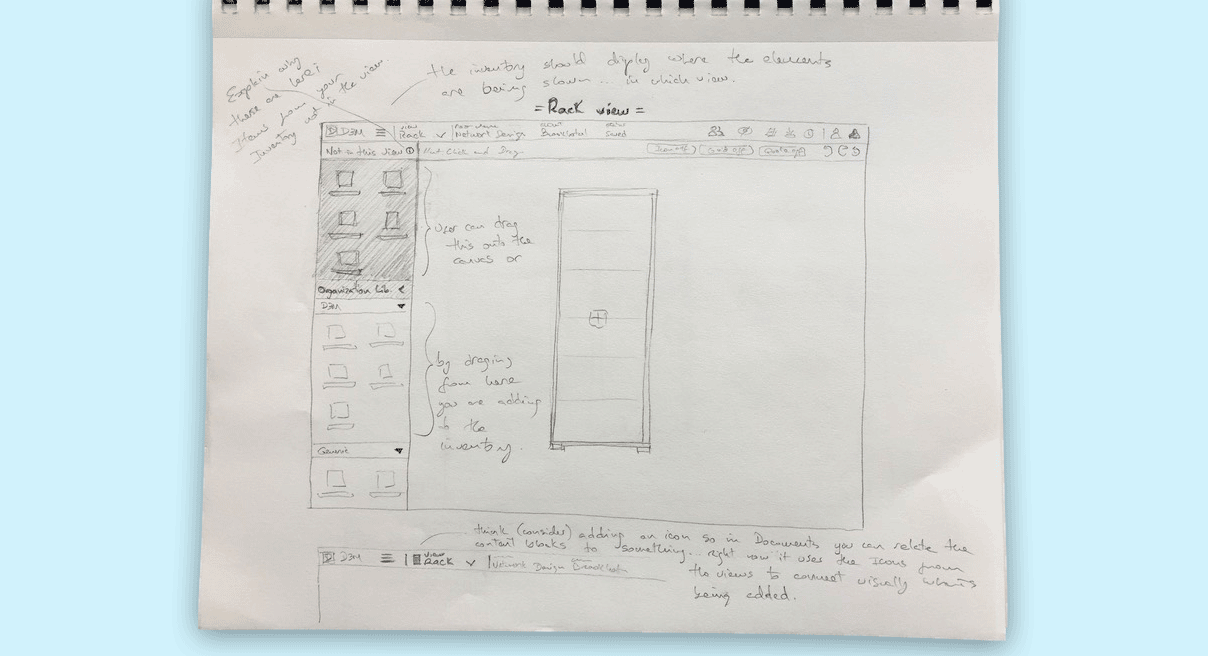 Explain why
these are here;
Items from your
Inventory not in the view
the inventory should display where the elements
are being shown... in which view.
= Rack view =
D3M
view
Rack
Network Design
Saved
Not in this view
and Drag
user can drag
this onto the
canvas or
Organization Lib.
D3M
by draging
from here
you are adding
to the
inventory.
Generic
think (consider) adding an icon so in Documents you can relate the
content blocks to something... right now it uses the Icons from
the views to connect visually what is
being added.
D3M
view
Rack
Network Design